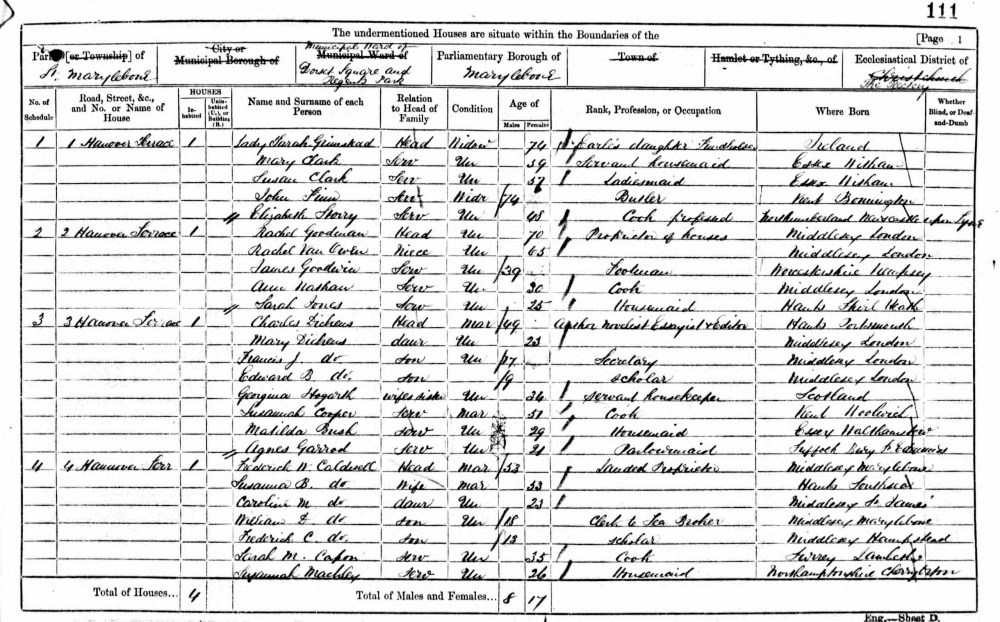 111
The undermentioned Houses are situate within the Boundaries of the [Page 1
Parish [or Township] of City or Municipal Borough of Municipal Ward of Municipal Ward of Parliamentary Borough of Town of Hamlet or Tything, &c., of Ecclesiastical District of
St. Marylebone Dorset Square and Regents Park Marylebone Christchurch The Rectory
No. of Schedule Road, Street, &c., and No. or Name of House HOUSES Inhabited Uninhabited (U.), or Building (B.) Name and Surname of each Person Relation to Head of Family Condition Age of Males Females Rank, Profession, or Occupation Where Born Whether Blind, or Deaf-and-Dumb
1 1 Hanover Terrace 1 Lady Sarah Head Widow 74 Earl's daughter Fundholder Ireland
Mary Clark Serv Un 39 Servant housemaid Essex Witham
Susan Clark Serv Un 37 Ladiesmaid Essex Witham
John Finn Serv Widr 74 Butler Kent Bonnington
Elizabeth Storry Serv Un 48 Cook professd Northumberland Newcastle upon Tyne
2 2 Hanover Terrace 1 Rachel Goodman Head Un 70 Proprietor of houses Middlesex London
Rachel Van Oven Niece Un 65 Middlesex London
James Goodwin Serv Un 39 Footman Worcestershire Kempsey
Ann Nathan Serv Un 30 Cook Middlesex London
Sarah Jones Serv Un 25 Housemaid Hants Heath
3 3 Hanover Terrace 1 Charles Dickens Head Mar 49 Author Novelist Essayist & Editor Hants Portsmouth
Mary Dickens daur Un 23 Middlesex London
Francis J. do son Un 17 Secretary Middlesex London
Edward B. do son 9 scholar Middlesex London
Georgina Hogarth wifes sister Un 34 servant housekeeper Scotland
Susannah Cooper Serv Mar 51 Cook Kent Woolwich
Matilda Bush Serv Un 29 Housemaid Essex Walthamstow
Agnes Garrod Serv Un 21 Parlourmaid Suffolk Bury St Edmunds
4 4 Hannover Terr 1 Frederick W Caldwell Head Mar 53 Landed Proprietor Middlesex Marylebone
Susanna B. do Wife Mar 53 Hants Southsea
Caroline M. do daur Un 23 Middlesex St James'
William F. do son Un 18 Clerk to Tea Broker Middlesex Marylebone
Frederick C. do son 13 scholar Middlesex Hampstead
Sarah M. Capon Serv Un 35 Cook Surrey Lambeth
Susannah Serv Un 26 Housemaid Northamptonshire
Total of Houses... 4 Total of Males and Females... 8 17
Eng.—Sheet D.